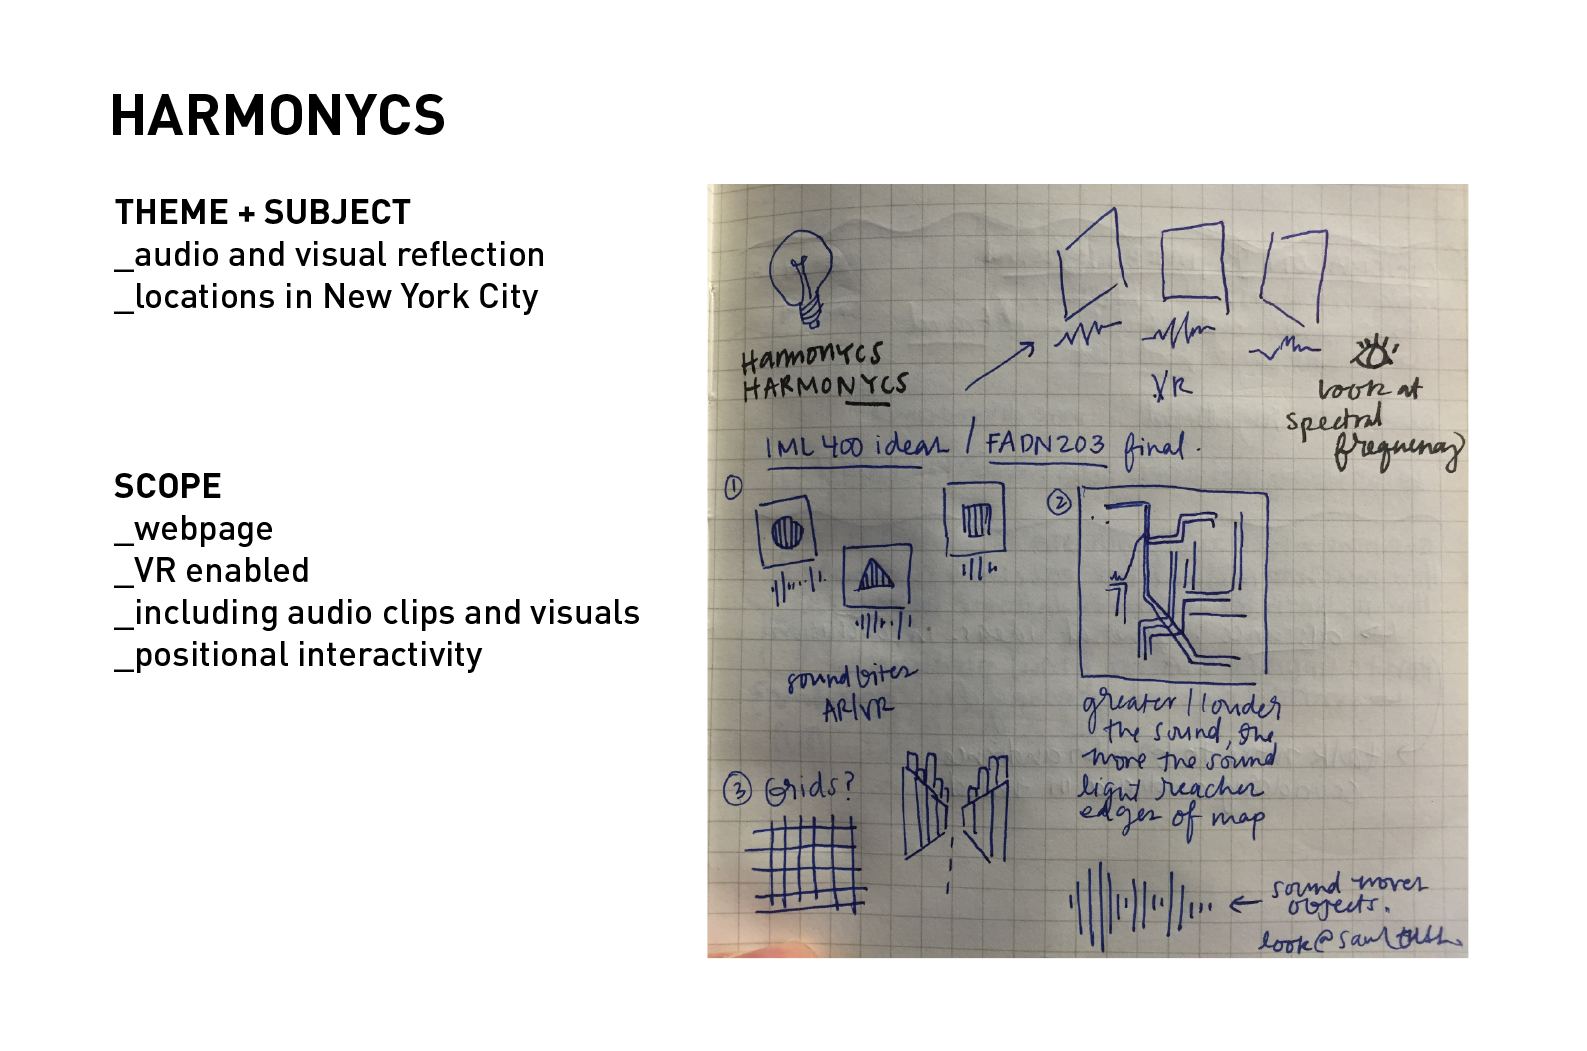 HARMONYCS
THEME + SUBJECT
_audio and visual reflection
_locations in New York City
SCOPE
_webpage
_VR enabled
_including audio clips and visuals
_positional interactivity
HarmonYCS
HARMONYCS
VR
look at
spectral
frequency
IML 400 ideas / FADN203 final.
1
soundbites
AR/VR
2
greater / louder
the sound, the
more the sound
light reaches
edges of map
3 Grids?
sound moves
objects.
look @ Saul